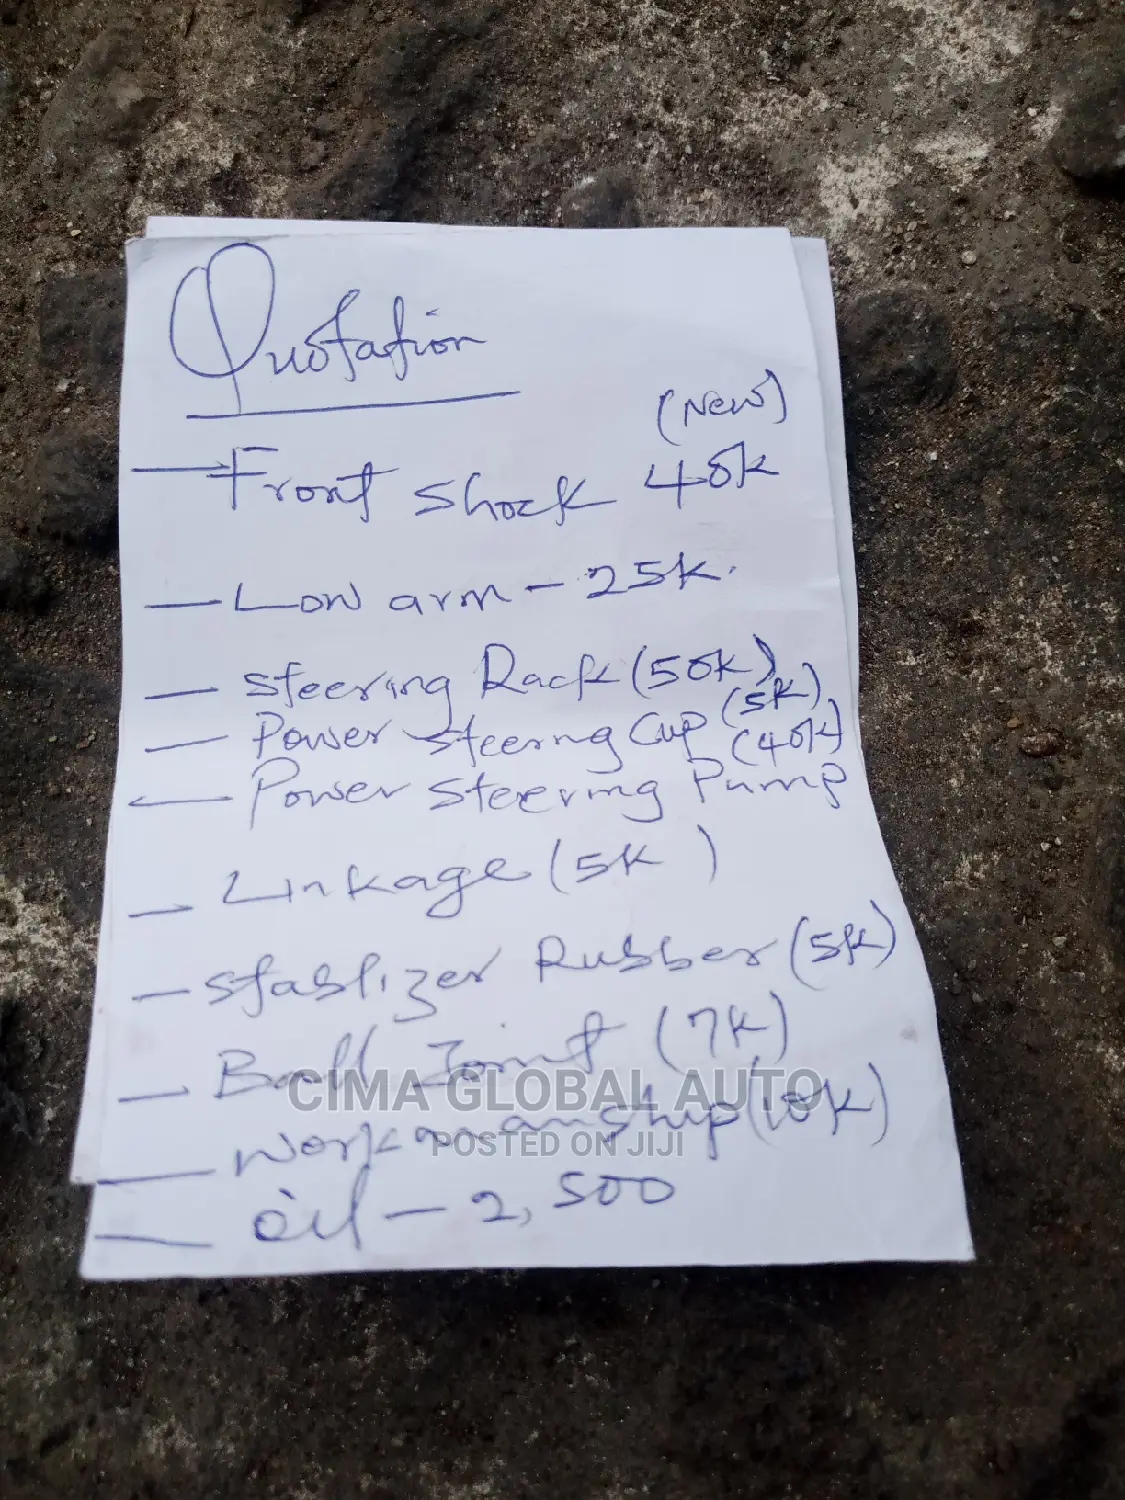 Quotation
(New)
— Front shock 40k
— Low arm - 25k.
— Steering Rack (50k)
— Power steering Cup (5k)
(40k)
— Power steering Pump
— Linkage (5k)
— Stablizer Rubber (5k)
— Ball Joint (7k)
— Workmanship (10k)
— oil - 2,500
CIMA GLOBAL AUTO
POSTED ON JIJI